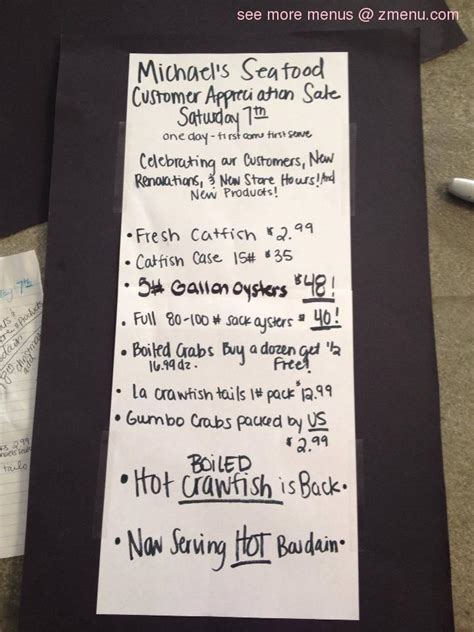 see more menus @ zmenu.com
Michael's Seafood
Customer Appreciation Sale
Saturday 7th
one day - first come first serve
Celebrating our Customers, New
Renovations, & New Store Hours! And
New Products!
• Fresh Catfish $2.99
• Catfish Case 15# $35
• 5# Gallon Oysters $48!
• Full 80-100# sack oysters $40!
• Boiled Crabs Buy a dozen get 1/2
16.99 dz. Free!
• La Crawfish tails 1# pack $12.99
• Gumbo Crabs packed by US
$2.99
BOILED
• Hot Crawfish is Back.
• Now Serving HOT Boudain •
7th
2.99
tails